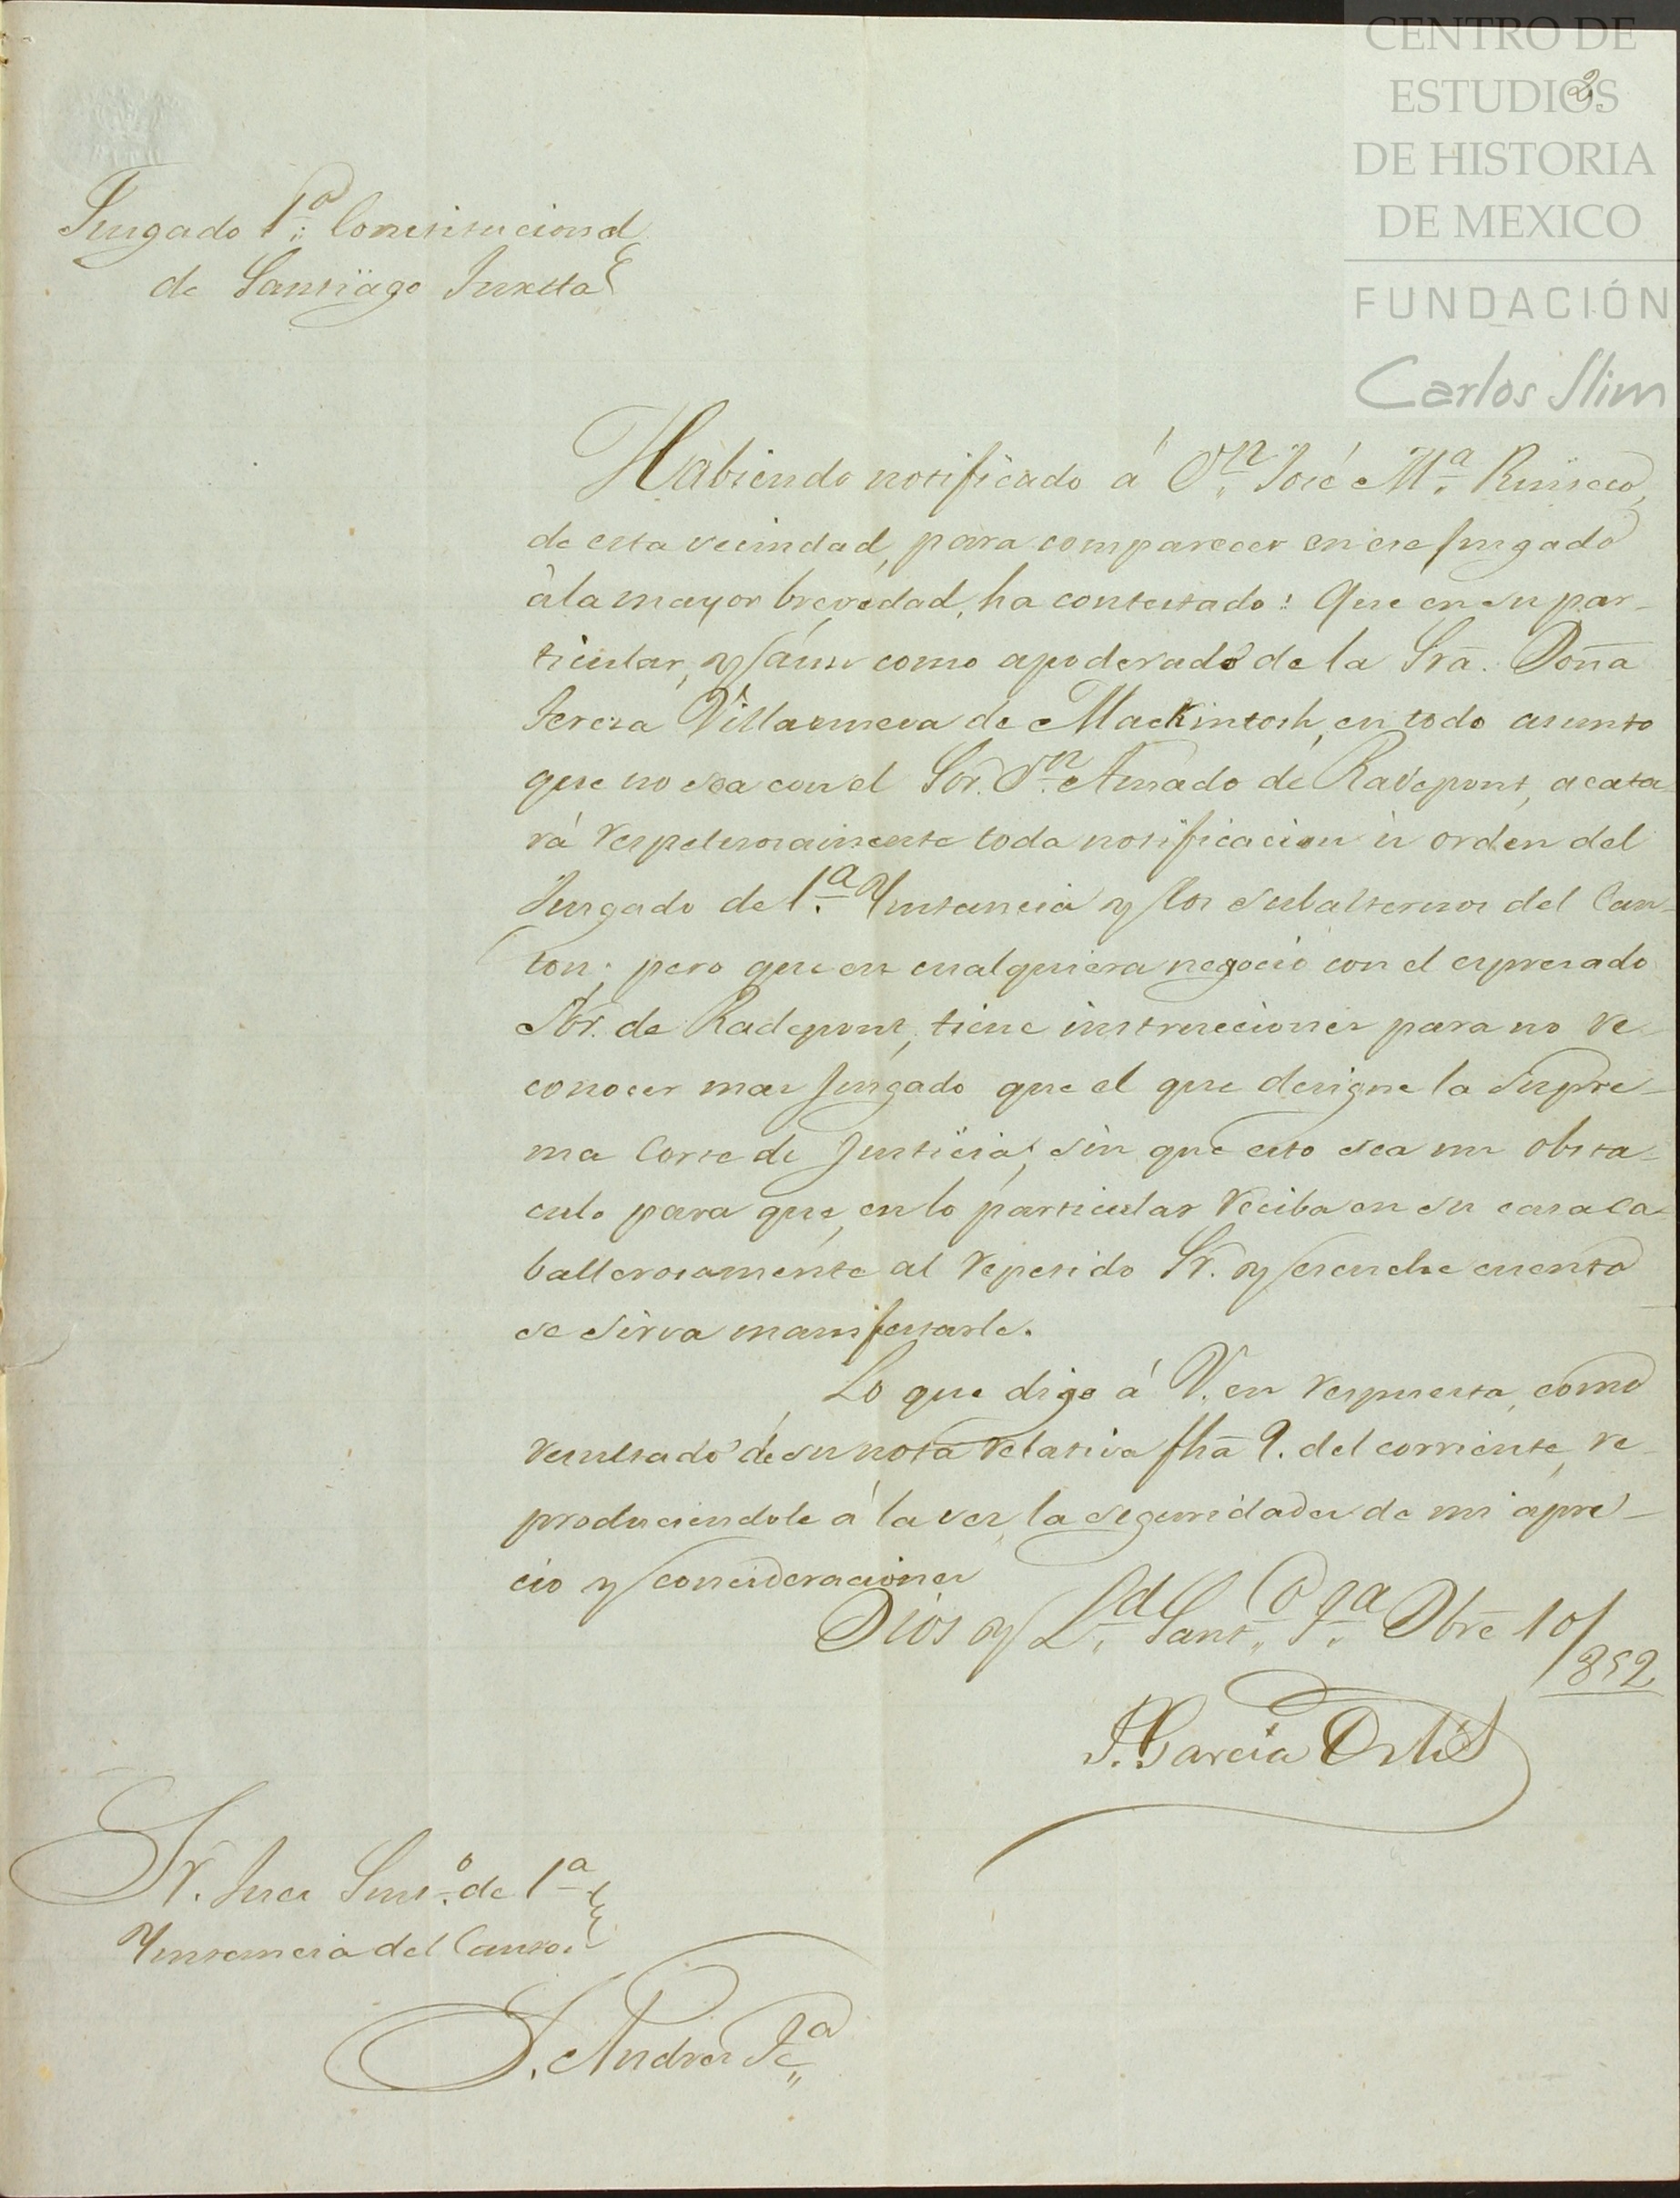 CENTRO DE
ESTUDIOS
DE HISTORIA
DE MEXICO
FUNDACIÓN
Carlos Slim
2.
Juzgado 1º Constitucional
de Santiago Tuxtla
Habiendo notificado á Dn José Ma.
de esta vecindad, para comparecer en ese juzgado
á la mayor brevedad, ha contestado: Que en su par-
ticular, y aun como apoderado de la Sra. Doña
Teresa Villanueva de Mackintosh, en todo asunto
que no sea con el Sor. Dn Amado de Radepont, acata-
rá respetuosamente toda notificacion ú orden del
Juzgado de 1a. Ynstancia y los subalternos del Can-
ton; pero que en cualquiera negocio con el espresado
Sor. de Radepont, tiene instrucciones para no re-
conocer mas juzgado que el que designe la Supre-
ma Corte de Justicia; sin que esto sea un obsta-
culo para que, en lo particular reciba en su casa ca-
ballerosamente al repetido Sr. y escuche cuanto
se sirva manifestarle.
Lo que digo á V. en respuesta, como
resultado de su nota relativa fha 9. del corriente, re-
produciendole á la vez, la seguridades de mi apre-
cio y consideraciones
Dios y Ld. Santo. Ta. Dbre 10/852
J. García Ortiz
Sr. Juez Sust.o de 1a
Ynstancia del Canton
S. Andres Ta